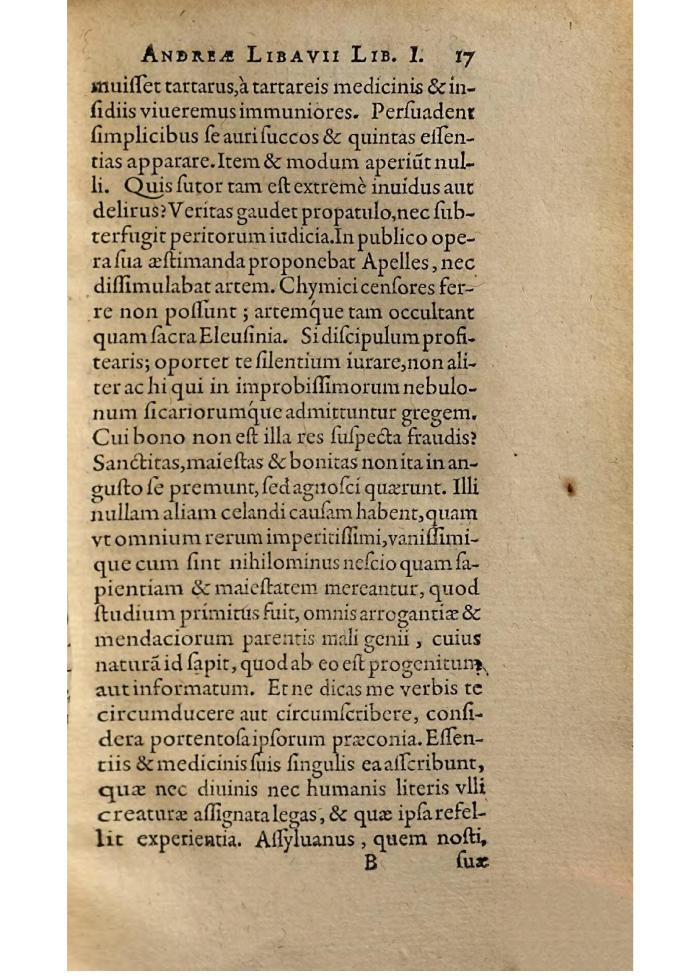 ANDREÆ LIBAVII LIB. I. 17
muiſſet tartarus, à tartareis medicinis & in-
ſidiis viueremus immuniores. Perſuadent
ſimplicibus ſe auri ſuccos & quintas eſſen-
tias apparare. Item & modum aperiũt nul-
li. Quis ſutor tam eſt extremè inuidus aut
delirus? Veritas gaudet propatulo, nec ſub-
terfugit peritorum iudicia. In publico ope-
ra ſua æſtimanda proponebat Apelles, nec
diſſimulabat artem. Chymici cenſores fer-
re non poſſunt; artemq́ue tam occultant
quam ſacra Eleuſinia. Si diſcipulum profi-
tearis; oportet te ſilentium iurare, non ali-
ter ac hi qui in improbiſſimorum nebulo-
num ſicariorumq́ue admittuntur gregem.
Cui bono non eſt illa res ſuſpecta fraudis?
Sanctitas, maieſtas & bonitas non ita in an-
guſto ſe premunt, ſed agnoſci quærunt. Illi
nullam aliam celandi cauſam habent, quam
vt omnium rerum imperitiſſimi, vaniſſimi-
que cum ſint nihilominus neſcio quam ſa-
pientiam & maieſtatem mereantur, quod
ſtudium primitus fuit, omnis arrogantiæ &
mendaciorum parentis mali genii, cuius
naturã id ſapit, quod ab eo eſt progenitum,
aut informatum. Et ne dicas me verbis te
circumducere aut circumſcribere, conſi-
dera portentoſa ipſorum præconia. Eſſen-
tiis & medicinis ſuis ſingulis ea aſſcribunt,
quæ nec diuinis nec humanis literis vlli
creaturæ aſſignata legas, & quæ ipſa refel-
lit experientia. Aſſyluanus, quem noſti,
B ſuæ